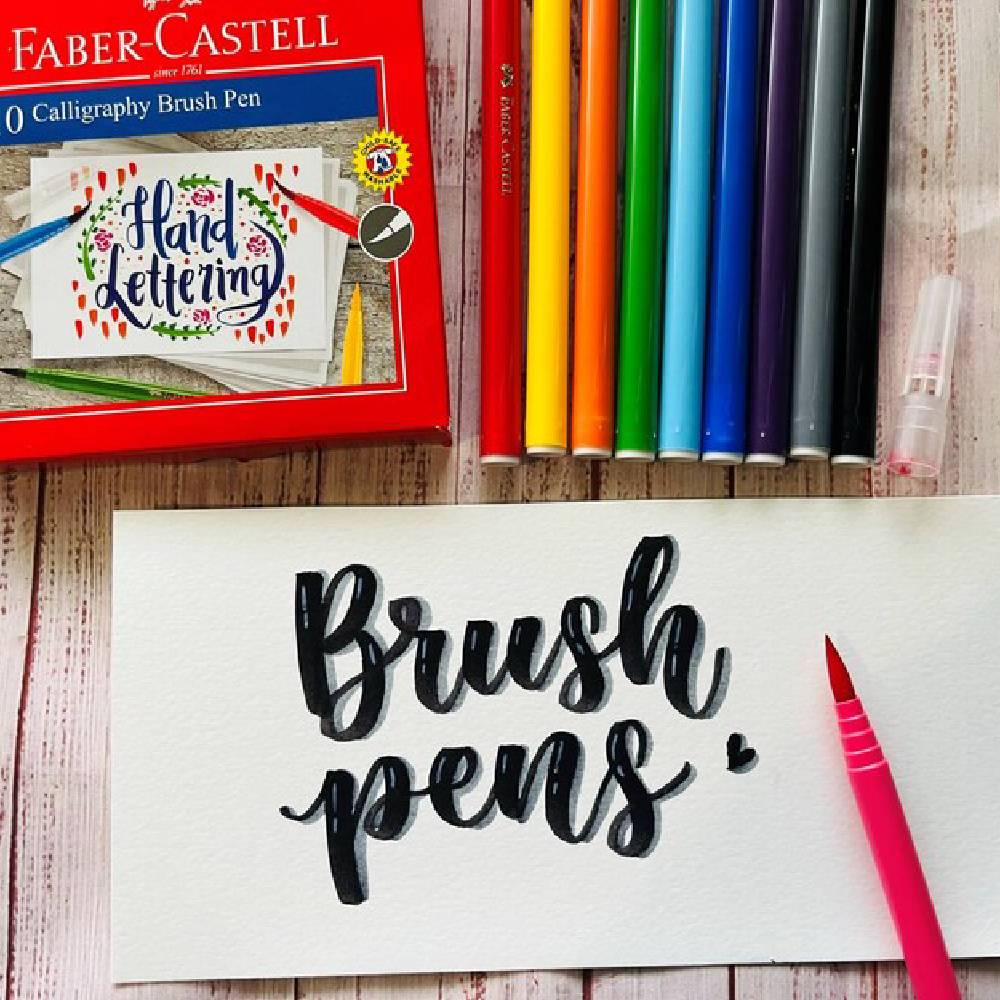 FABER-CASTELL
since 1761
0 Calligraphy Brush Pen
Hand
Lettering
FABER-CASTELL
Brush
pens